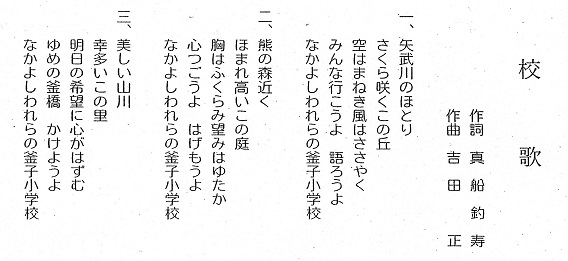 校歌
作詞 真船釣寿
作曲 吉田正
一、矢武川のほとり
さくら咲くこの丘
空はまねき風はささやく
みんな行こうよ 語ろうよ
なかよしわれらの釜子小学校
二、熊の森近く
ほまれ高いこの庭
胸はふくらみ望みはゆたか
心つごうよ はげもうよ
なかよしわれらの釜子小学校
三、美しい山川
幸多いこの里
明日の希望に心がはずむ
ゆめの釜橋 かけようよ
なかよしわれらの釜子小学校